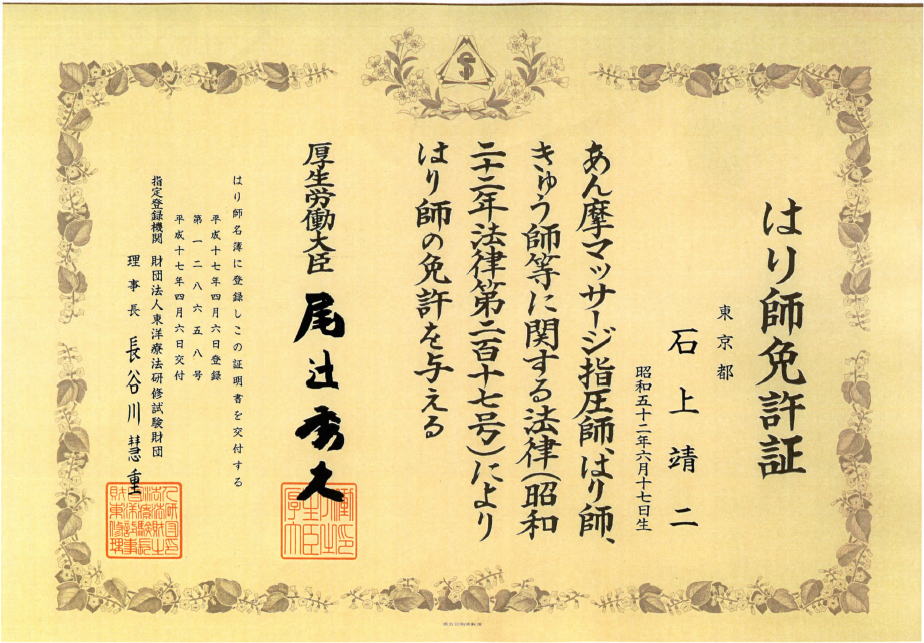 はり師免許証
東京都
石上靖二
昭和五十二年六月十七日生
あん摩マッサージ指圧師、はり師、
きゅう師等に関する法律(昭和
二十二年法律第二百十七号)により
はり師の免許を与える
厚生労働大臣 尾辻秀久
はり師名簿に登録しこの証明書を交付する
平成十七年四月六日登録
第一二八六五八号
平成十七年四月六日交付
指定登録機関 財団法人東洋療法研修試験財団
理事長 長谷川慧重